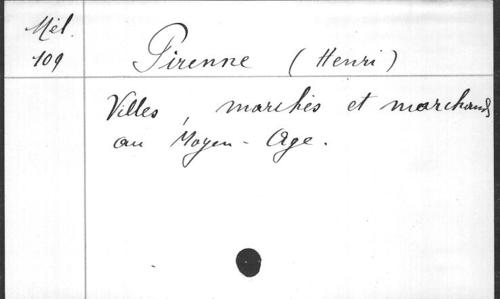 Mél.
109
Pirenne (Henri)
Villes, marchés et marchands
au Moyen-Age.